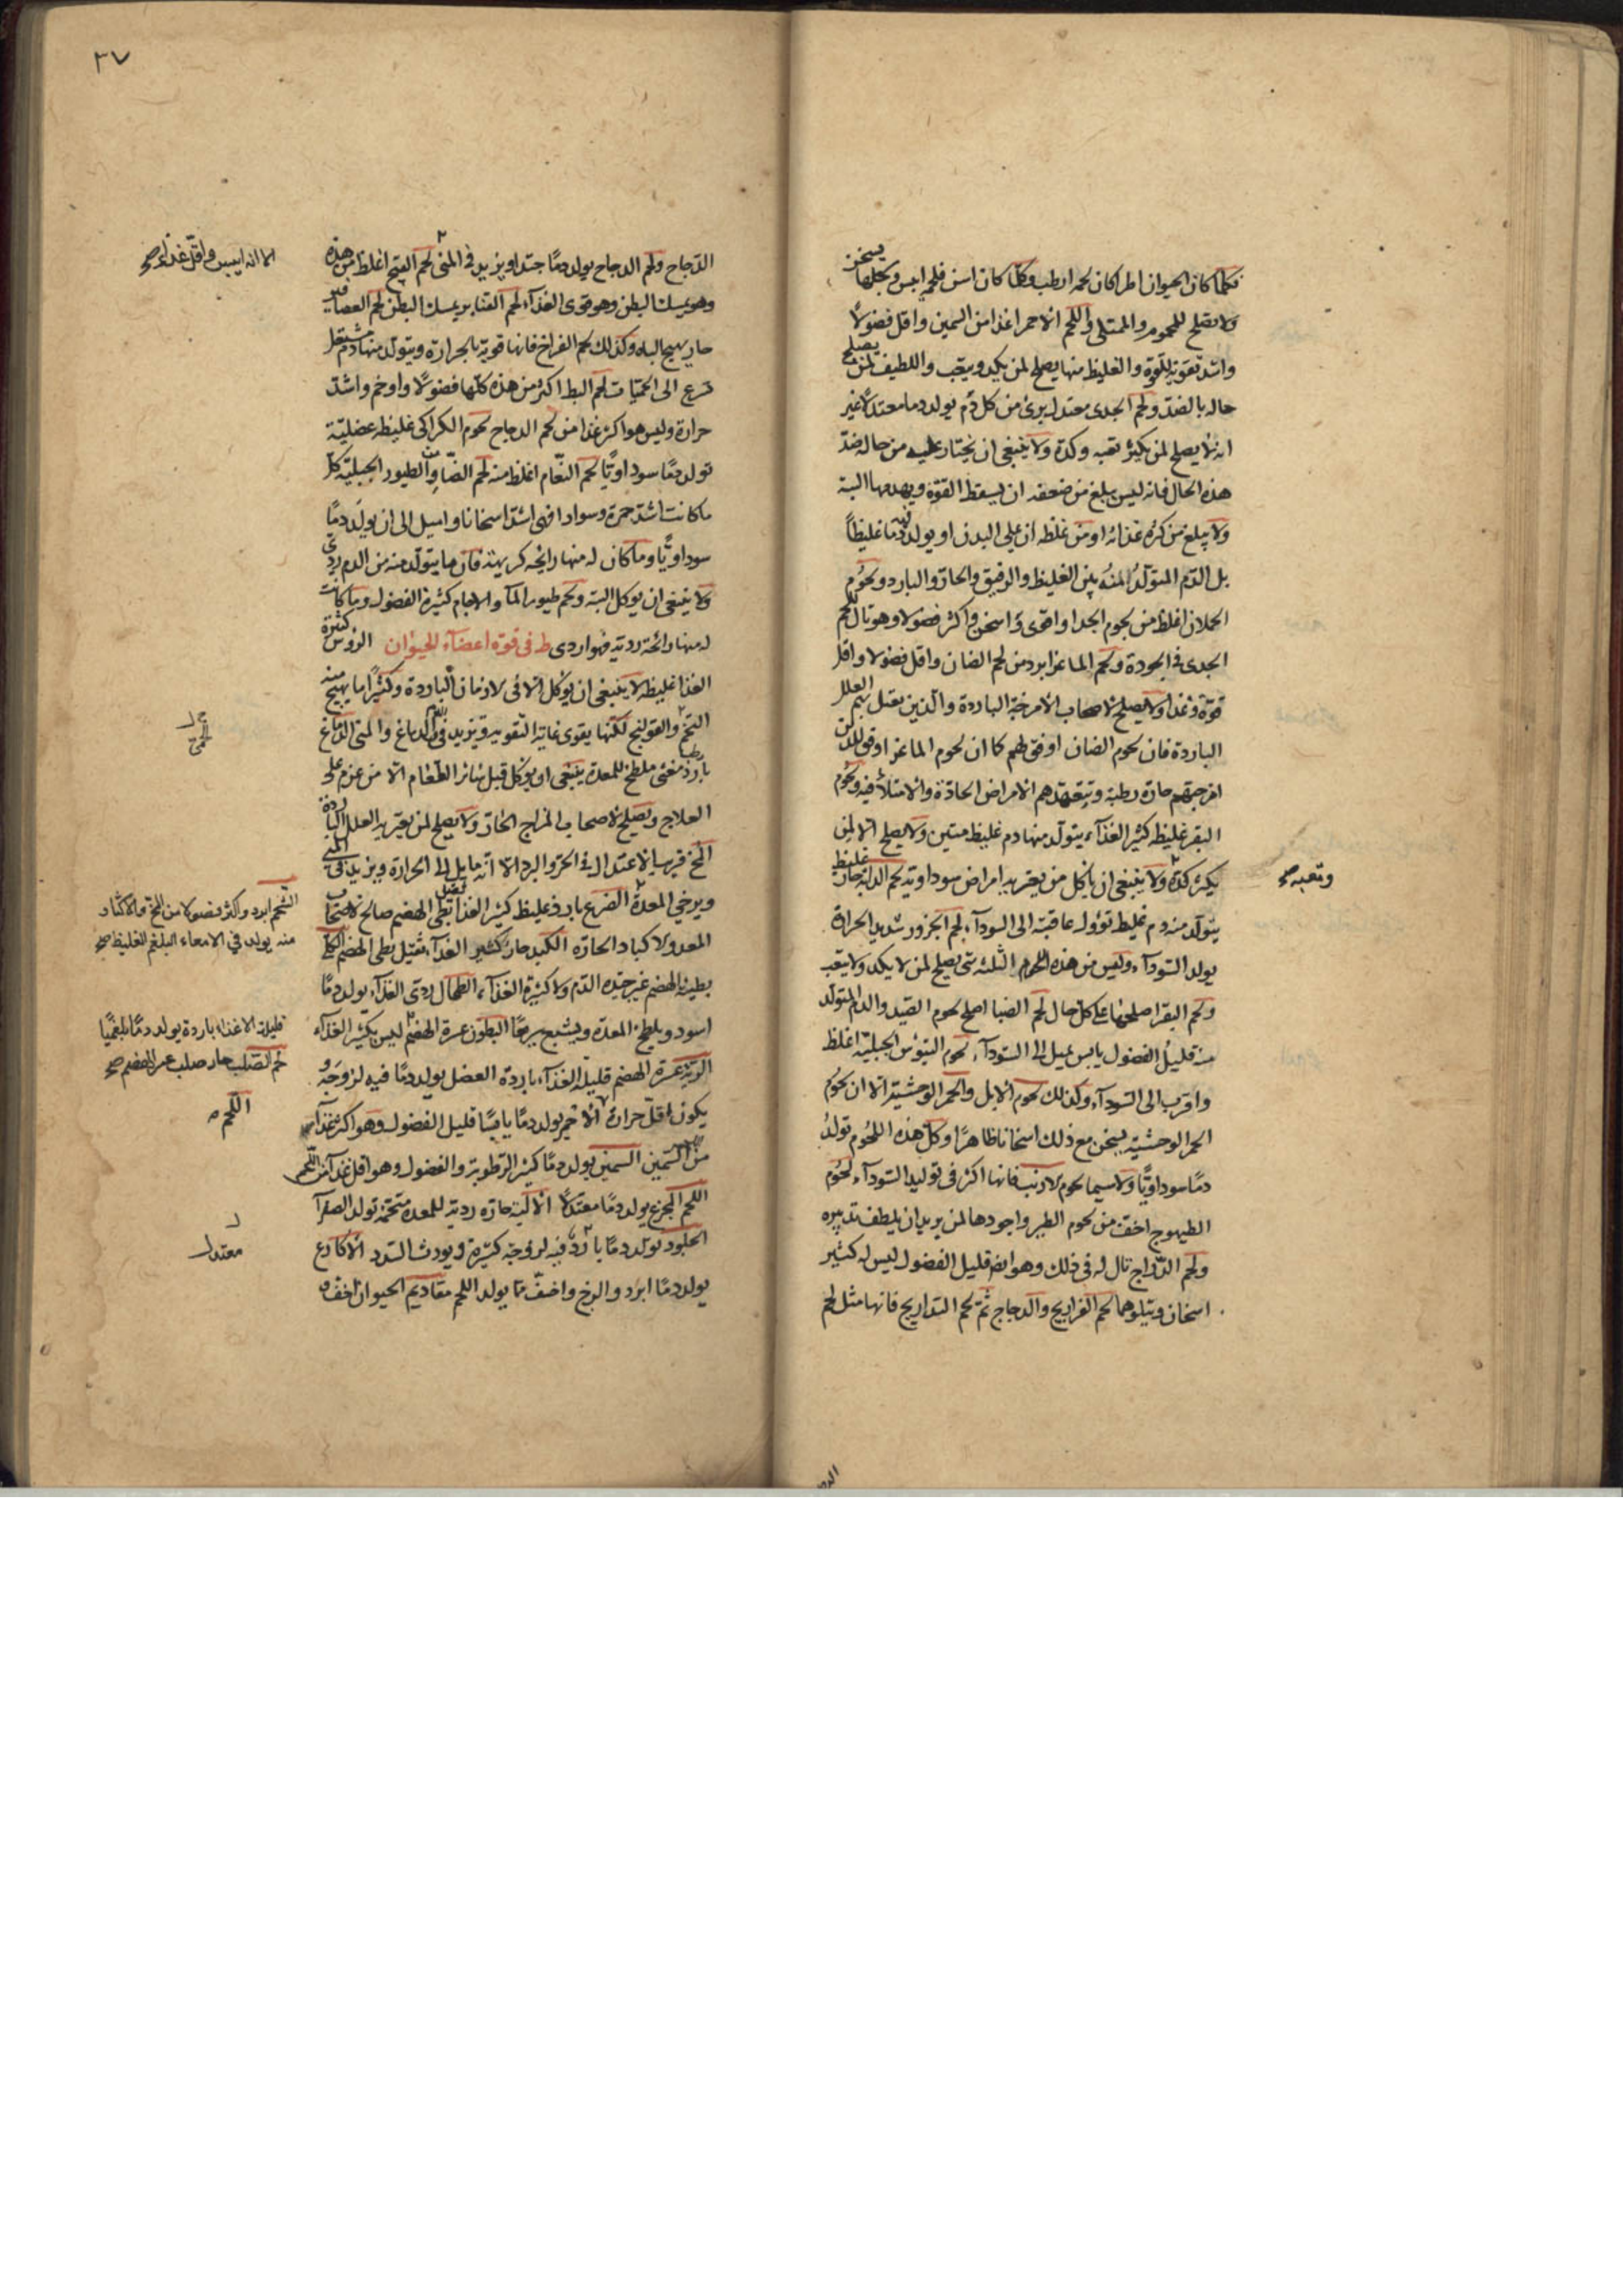 فكلما كان الحيوان اطرا كان لحمه ارطب وكلما كان اسن فلحمه ايبس وكلها يسخن
ولا يصلح للمحموم والممتلى واللحم الاحمر اغذا من السمين واقل فضولاً
واشد تقوية للقوة والغليظ منها يصلح لمن يكد ويتعب واللطيف لمن يصلح
حاله بالضد ولحم الجدى معتدل برئ من كل ذم يولد دما معتدلا غير
انه لا يصلح لمن يكثر تعبه وكده ولا ينبغى ان يختار عليه من حاله ضد
هذه الحال فانه ليس يبلغ من ضعفه ان يسقط القوة ويهدمها البتة
ولا يبلغ من كثره غذائه او من غلظه ان يملى البدن او يولد فيه دما غليظاً
بل الدم المتولد منه بين الغليظ والرقيق والحار والبارد ولحوم
الحملان اغلظ من لحوم الجدا واقوى واسخن واكثر فضولا وهو تال للحم
الجدى فى الجودة ولحم الماعز ابرد من لحم الضان واقل فضولا واقل
قوة وغذا ولا يصلح لاصحاب الامزجة الباردة والذين بهم العلل
الباردة فان لحوم الضان اوفق لهم كما ان لحوم الماعز اوفق للذين
امزجتهم حارة رطبة وتتعهدهم الامراض الحادة والامتلائية ولحوم
البقر غليظ كثير الغذآء يتولد منها دم غليظ متين ولا يصلح الا لمن
يكثر كده ولا ينبغى ان ياكل من يعتريه امراض سوداوية لحم الدابة حار غليظ
يتولد منه دم غليظ تؤول عاقبته الى السودآء لحم الجزور شديد الحرارة
يولد السودآء وليس من هذه اللحوم الثلثه شى يصلح لمن لا يكد ولا يتعب
ولحم البقر اصلحها على كل حال لحم الضبا اصلح لحوم الصيد والدم المتولد
منه قليل الفضول يابس يميل الى السودآء لحوم التيوس الجبلية اغلظ
واقرب الى السودآء وكذلك لحوم الابل والحمر الوحشية الا ان لحوم
الحمر الوحشية يسخن مع ذلك اسخانا ظاهرًا وكل هذه اللحوم تولد
دمًا سوداويًا ولا سيما لحوم الارنب فانها اكثر فى توليد السودآء لحوم
الطيهوج اخف من لحوم الطير واجودها لمن يريد ان يلطف تدبيره
ولحم الدراج تال له فى ذلك وهو ايضا قليل الفضول ليس له كثير
اسخان ويتلوهما لحم الفراريج والدجاج ثم لحم التداريج فانها مثل لحم
وتعبه صح
٣٧
الدجاج ولحم الدجاج يولد دمًا جيدًا ويزيد فى المنى لحم القبج اغلظ من هذه
وهو يمسك البطن وهو قوى الغذآء لحم القنابر يمسك البطن لحم العصافير
حار يهيج الباه وكذلك لحم الفراخ فانها قوية الحرارة ويتولد منها دم مشتعل
تسرع الى الحميات لحم البط اكثر من هذه كلها فضولًا واوخم واشد
حرارة وليس هو اكثر غذا من لحم الدجاج لحوم الكراكى غليظه عضلية
تولد دمًا سوداويًا لحم النعام اغلظ منه والطيور الجبلية كل
ما كانت اشد حمرة وسوادا فهى اشد اسخانا واميل الى ان يولد دمًا
سوداويًا وما كان له منها رايحه كريهة فان ما يتولد منه من الدم ردى
ولا ينبغى ان يوكل البتة ولحم طيور المآ والاجام كثيرة الفضول وما كانت
له منها رائحة ردية فهو اردى ط فى قوة اعضآء الحيوان الروس كثيرة
الغذا غليظه لا ينبغى ان يؤكل الا فى الازمان الباردة وكثيرًا ما يهيج منه
التخم والقولنج لكنها يقوى غاية التقوية ويزيد فى المنى الدماغ
بارد رطب مغثى ملطخ للمعدة ينبغى ان يؤكل قبل سائر الطعام الا من عزم على
العلاج ويصلح لاصحاب المزاج الحار ولا يصلح لمن يعتريه العلل الباردة
المخ قريب الاعتدال فى الحر والبرد الا انه مايل الى الحرارة ويزيد فى المنى
ويرخى المعدة الضرع بارد غليظ كثير الغذا بطى الهضم صالح لاصحاب
المعد والاكباد الحارة الكبد حار كثير الغذآء ثقيل بطى الهضم الكلى
بطيئة الهضم غير جيدة الدم ولا كثيرة الغذآء الطحال ردى الغذآء يولد دمًا
اسود ويلطخ المعدة ويشبع سريعًا البطون عسرة الهضم ليس بكثير الغذآء
الرية عسرة الهضم قليلة الغذآء باردة العضل يولد دمًا فيه لزوجة و
يكون اقل حرارة الاحمر يولد دمًا يابسًا قليل الفضول وهو اكثر غذآء
من السمين السمين يولد دمًا كثير الرطوبة والفضول وهو اقل غذآء من اللحم
اللحم المجزع يولد دمًا معتدلًا الالية حارة ردية للمعدة متخمة تولد الصفرآ
الجلود تولد دمًا باردًا فيه لزوجة كثيرة ويورث السدد الاكارع
يولد دمًا ابرد والزج واخف مما يولد اللحم مقاديم الحيوان اخف
الا انه ايبس واقل غذاء صح
الشحم ابرد واكثر فضولا من المخ والاكثار
منه يولد فى الامعاء البلغم الغليظ صح
قليلة الاغذاء باردة يولد دمًا بلغميًا
لحم القلب حار صلب عسر الهضم صح
اللحم
معتدل